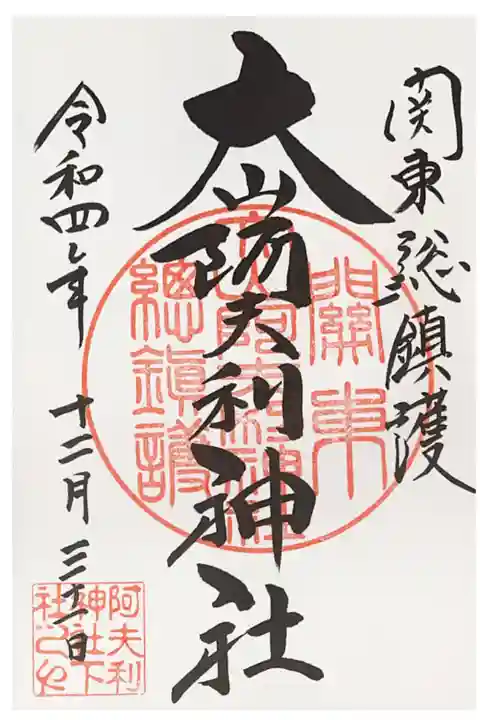 関東総鎮護
大山阿夫利神社
令和四年 十二月三十一日
關東
總鎮護
阿夫利
神社下
社之印